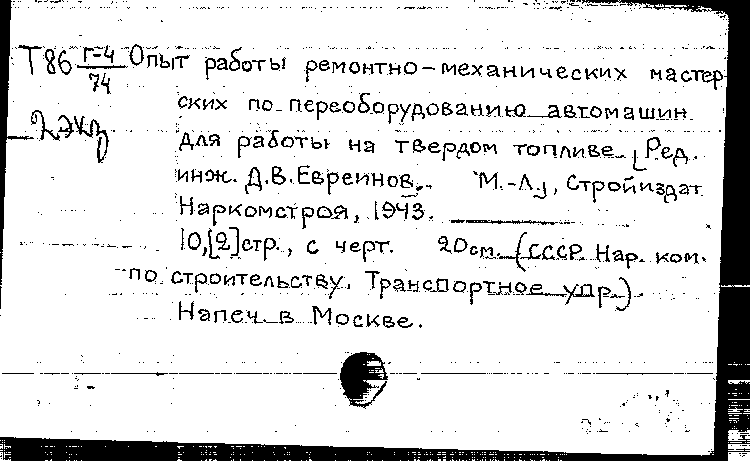 Т86 Г-4/74 Опыт работы ремонтно-механических мастер
2 экз ских по переоборудованию автомашин
для работы на твердом топливе. [Ред.
инж. Д.В.Евреинов. М.-Л., Стройиздат
Наркомстроя, 1943.
10,[2]стр., с черт. 20см. (СССР. Нар. ком.
по строительству. Транспортное упр.)
Напеч. в Москве.